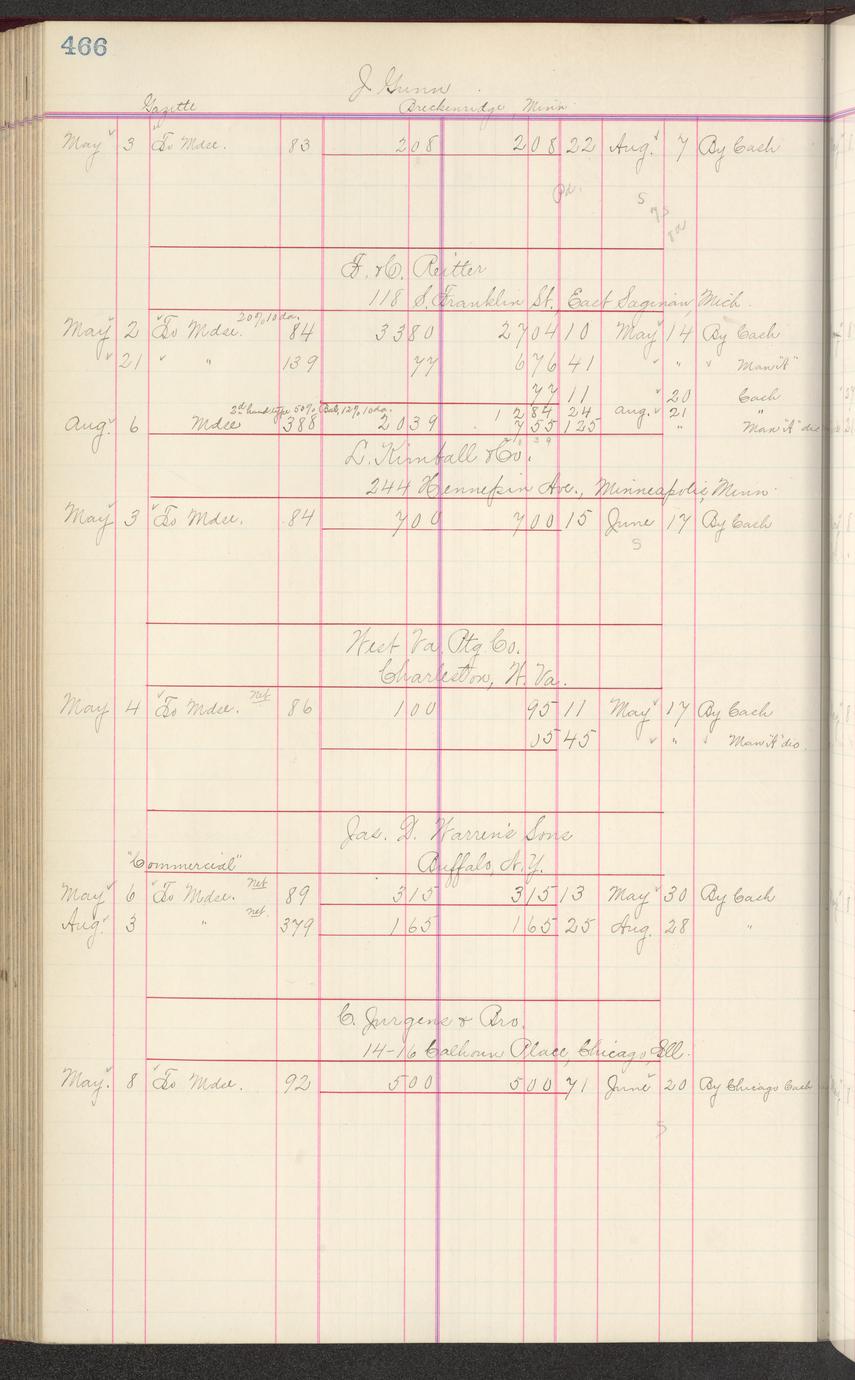 466
J Gunn
Gazette Breckenridge, Minn
May 3 To Mdse. 83 208 208 22 Aug. 7 By Cash
Pd.
F. & C. Reitter
118 S. Franklin St., East Saginaw, Mich.
20% 10 da.
May 2 To Mdse. 84 3380 2704 10 May 14 By Cash
" 21 " " 139 77 676 41 " " " Man "A"
77 11 " 20 Cash
2d hand type 50% Bal. 12% 10 da. 1284 24 Aug. 21 "
Aug. 6 Mdse 388 2039 755 125 " Man "A" dis
2039
L. Kimball & Co.
244 Hennepin Ave., Minneapolis, Minn.
May 3 To Mdse. 84 700 700 15 June 17 By Cash
S
West Va. Ptg Co.
Charleston, W. Va.
May 4 To Mdse. net 86 100 95 11 May 17 By Cash
05 45 " " " Man "A" dis.
Jas. D. Warren's Sons
"Commercial" Buffalo, N.Y.
May 6 To Mdse. net 89 315 315 13 May 30 By Cash
Aug. 3 " net. 379 165 165 25 Aug. 28 "
C. Jurgens & Bro.
14-16 Calhoun Place, Chicago, Ill.
May. 8 To Mdse. 92 500 500 71 June 20 By Chicago Cash
S